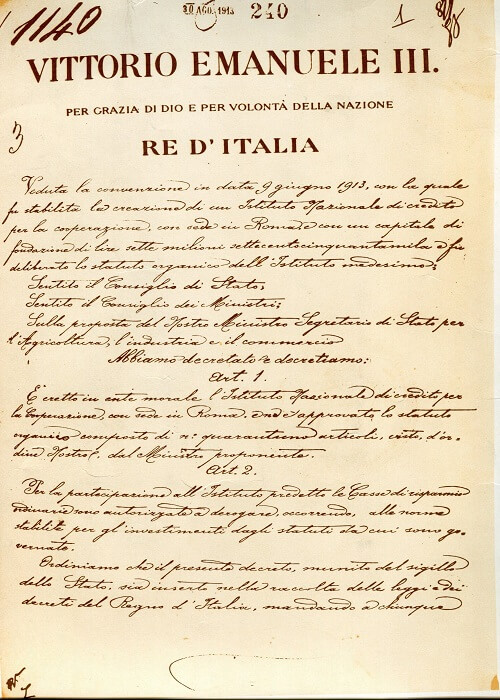 1140
30 AGO. 1913 240 1
VITTORIO EMANUELE III.
PER GRAZIA DI DIO E PER VOLONTÀ DELLA NAZIONE
3
RE D'ITALIA
Veduta la convenzione in data 9 giugno 1913, con la quale
fu stabilita la creazione di un Istituto Nazionale di credito
per la cooperazione, con sede in Roma e con un capitale di
fondazione di lire sette milioni settecentocinquantamila e fu
deliberato lo statuto organico dell'Istituto medesimo;
Sentito il Consiglio di Stato;
Sentito il Consiglio dei Ministri;
Sulla proposta del Nostro Ministro Segretario di Stato per
l'Agricoltura, l'industria e il commercio
Abbiamo decretato e decretiamo:
Art. 1.
E' eretto in ente morale l'Istituto Nazionale di credito per
la Cooperazione, con sede in Roma, ed è approvato lo statuto
organico composto di n: quarantuno articoli, visto, d'or-
dine Nostro, dal Ministro proponente.
Art. 2.
Per la partecipazione all'Istituto predetto le Casse di risparmio
ordinarie sono autorizzate a derogare, occorrendo, alle norme
stabilite per gli investimenti dagli statuti da cui sono go-
vernate.
Ordiniamo che il presente decreto, munito del sigillo
dello Stato, sia inserto nella raccolta delle leggi e dei
decreti del Regno d'Italia, mandando a chiunque